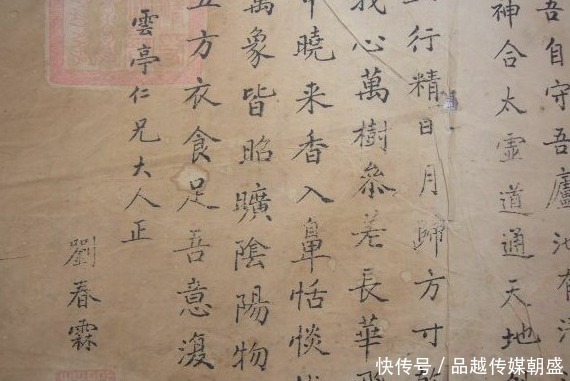 吾自守吾廬池有
神合太虛道通天地
行精日月歸方寸
我心萬樹參差長華
曉来香入鼻恬惔
萬象皆昭曠陰陽物
五方衣食足吾意復
雲亭仁兄大人正
劉春霖
快传号 / 品越传媒朝盛